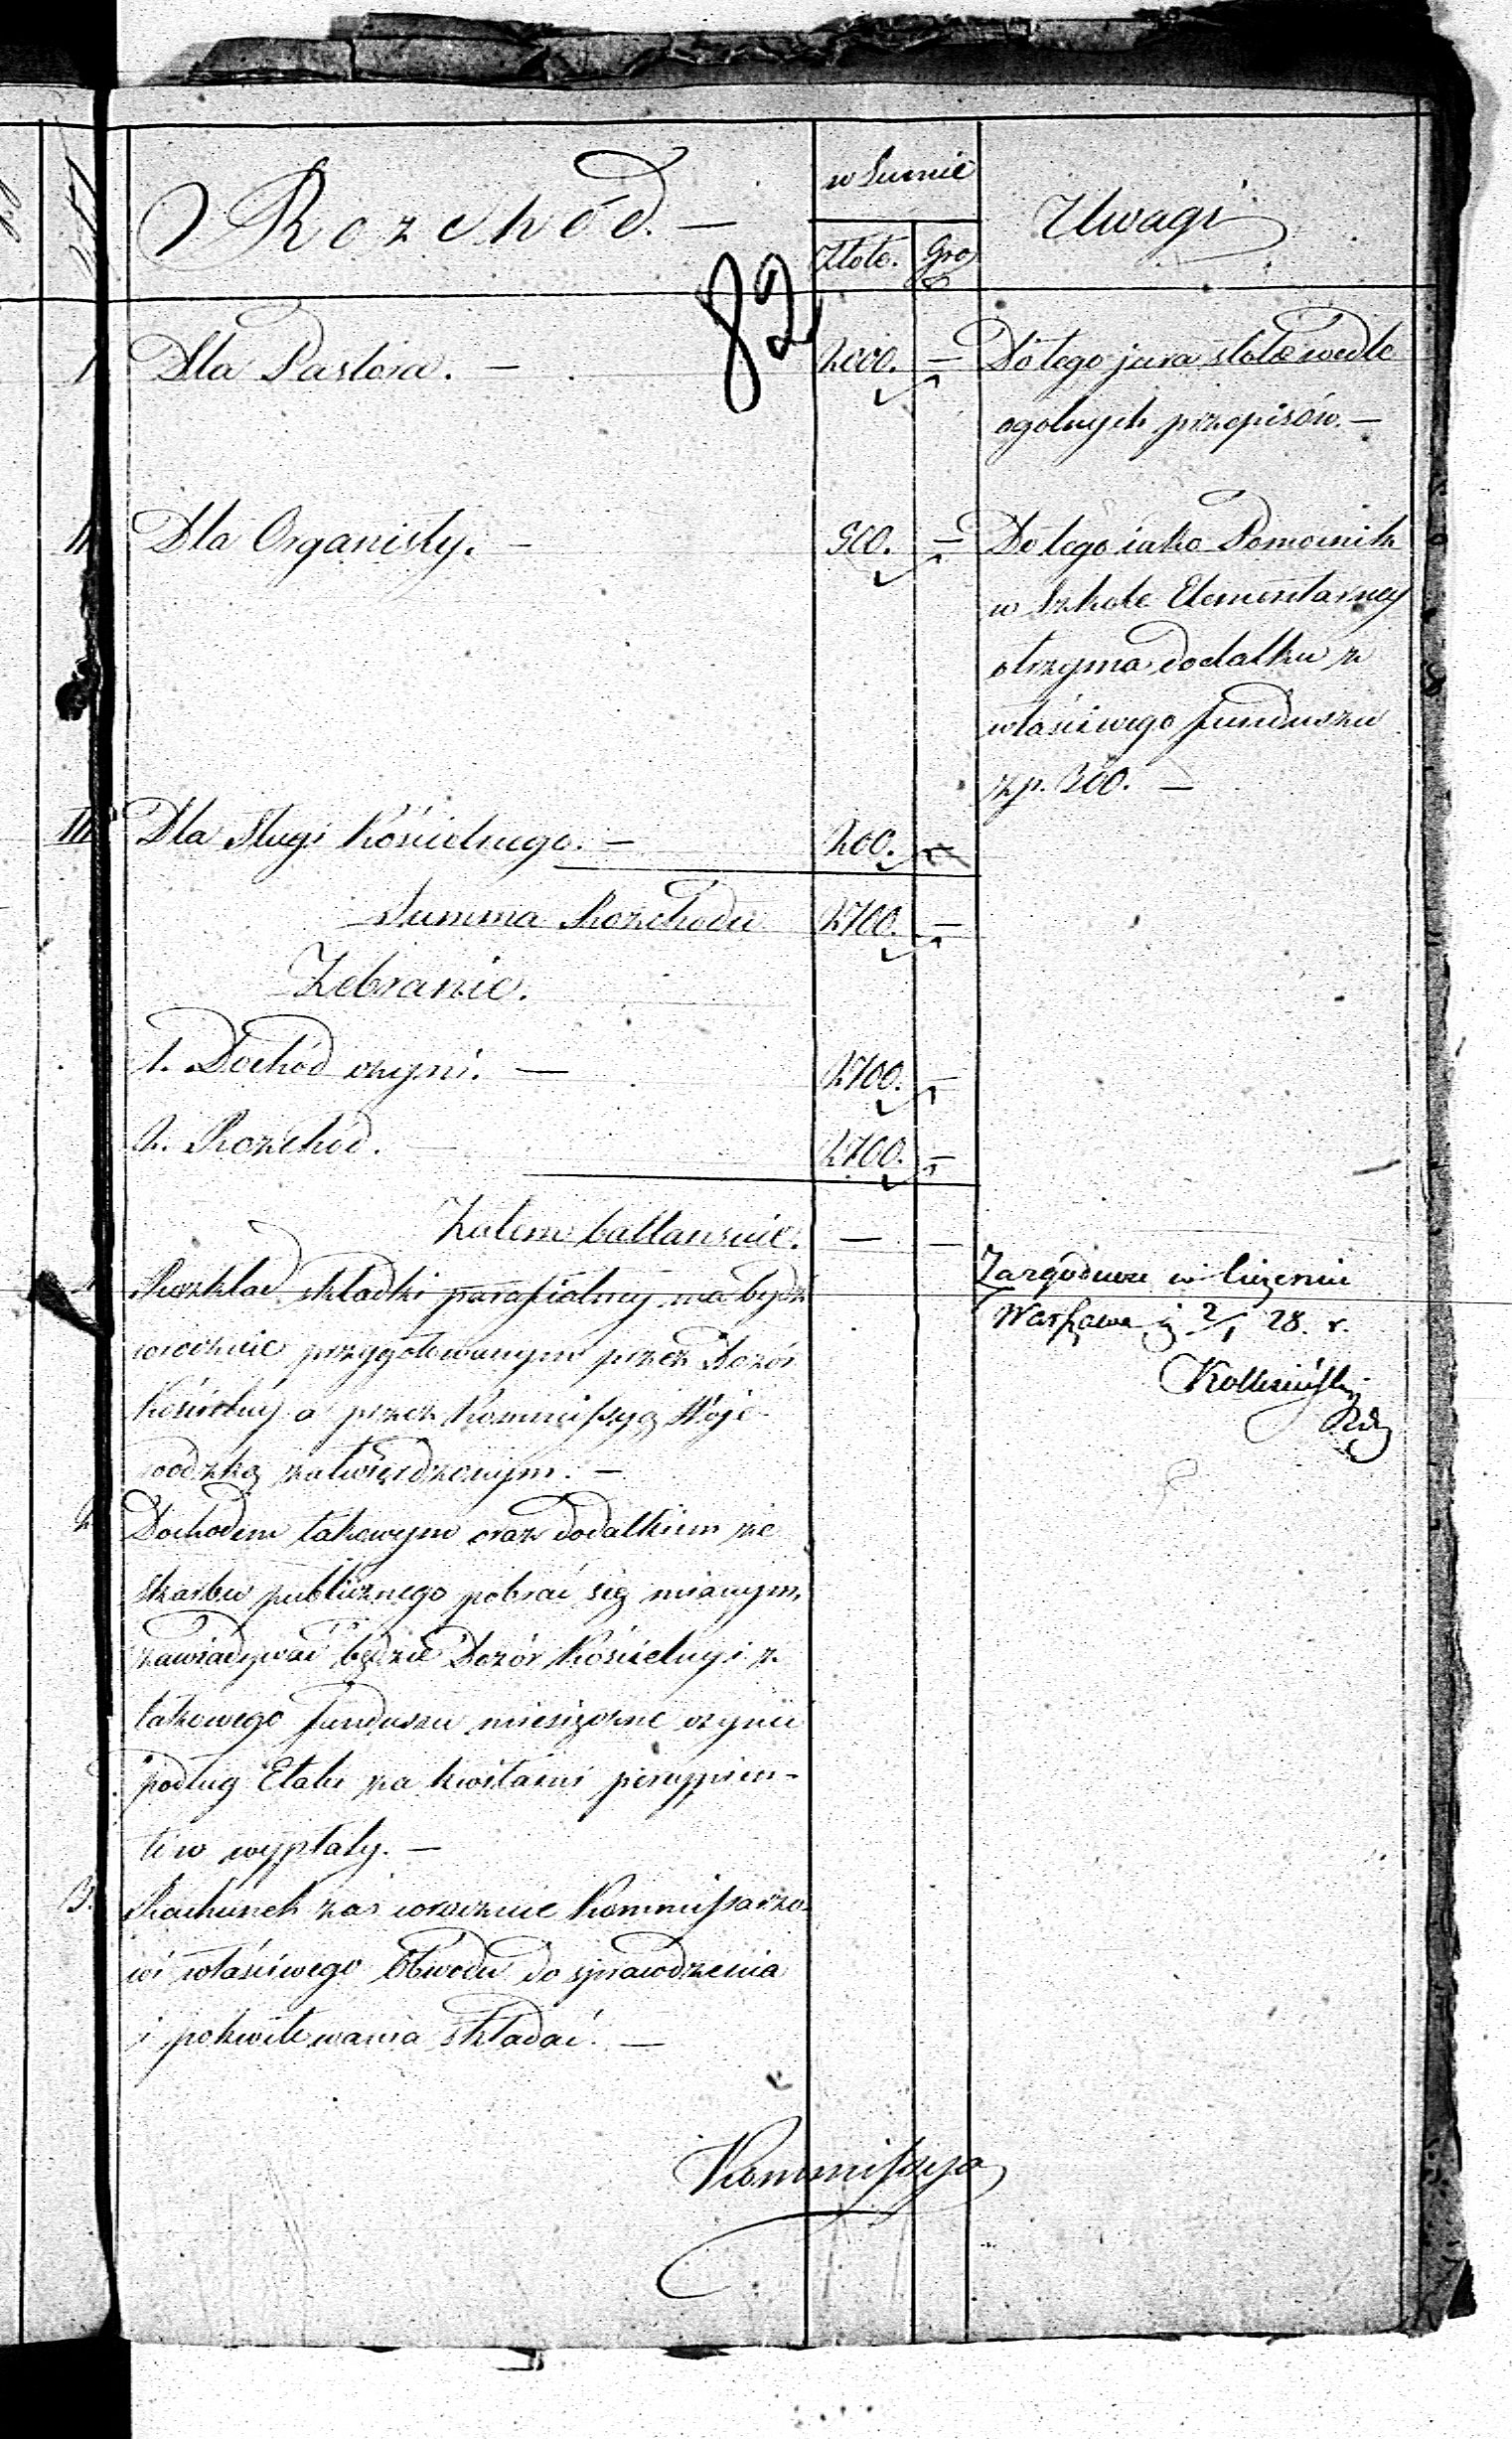 Rozchód. —
w Sumie
Uwagi
Złote. Gro
82
I Dla Pastora. — 2000. — Do tego jura stolæ wedle
ogolnych przepisów. —
II Dla Organisty. — 500. — Do tego iako Pomocnik
w Szkole Elementarney
otrzyma dodatku z
właściwego funduszu
zp. 300. —
III Dla Sługi Kościelnego. — 200. —
Summa Rozchodu 2700. —
Zebranie.
1. Dochód czyni. — 2700. —
2. Rozchód. — 2700. —
Zatem ballansuie. — —
1 Rozkład składki parafialney ma bydź
corocznie przygotowanym przez Dozór
Kościelny a przez Kommissyą Woje-
wodzką zatwierdzonym. —
Warszawa 2/1 28. r.
2 Dochodem takowym oraz dodatkiem ze
skarbu publicznego pobrać się mianym,
zawiadywać będzie Dozór Kościelny i z
takowego funduszu miesięczne czynić
podług Etatu za kwitami percypien-
tów wypłaty. —
3. Rachunek zaś corocznie Kommissarzo-
wi właściwego Obwodu do sprawdzenia
i pokwitowania składać. —
Kommissya